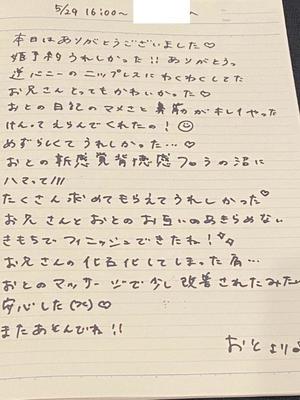 5/29 16:00〜 〜
本日はありがとうございました♡
姫予約うれしかった!!ありがとう。
逆バニーのニップレスにわくわくしてた
お兄さんとってもかわいかった♡
おとの日記のマメさと鼻筋がキレイやった
けんってえらんでくれたの!☺
めずらしくてうれしかった…♡
おとの新感覚背徳感フロラの沼に
ハマって///
たくさん求めてもらえてうれしかった♡
お兄さんとおとのお互いのあきらめない
きもちでフィニッシュできたね!✨
お兄さんの化石化してしまった肩…
おとのマッサージで少し改善されたみたい
安心した(x)♡
またあそんでね!!
おとより